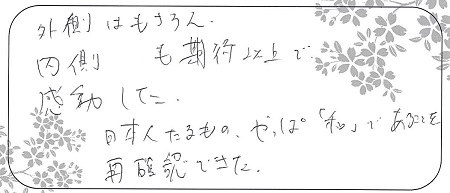 外側はもちろん.
内側　も期待以上で
感動した.
日本人たるもの、やっぱ「和」であることを
再確認できた.